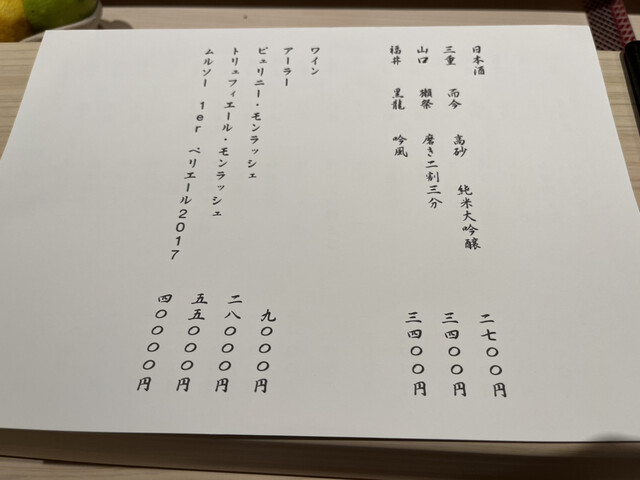 日本酒
三重 而今 高砂 純米大吟醸 二七〇〇円
山口 獺祭 磨き二割三分 三四〇〇円
福井 黒龍 吟風 三四〇〇円
ワイン
アーラー 九〇〇〇円
ピュリニー・モンラッシェ 二八〇〇〇円
トリュフィエール・モンラッシェ 五五〇〇〇円
ムルソー 1er ペリエール2017 四〇〇〇〇円